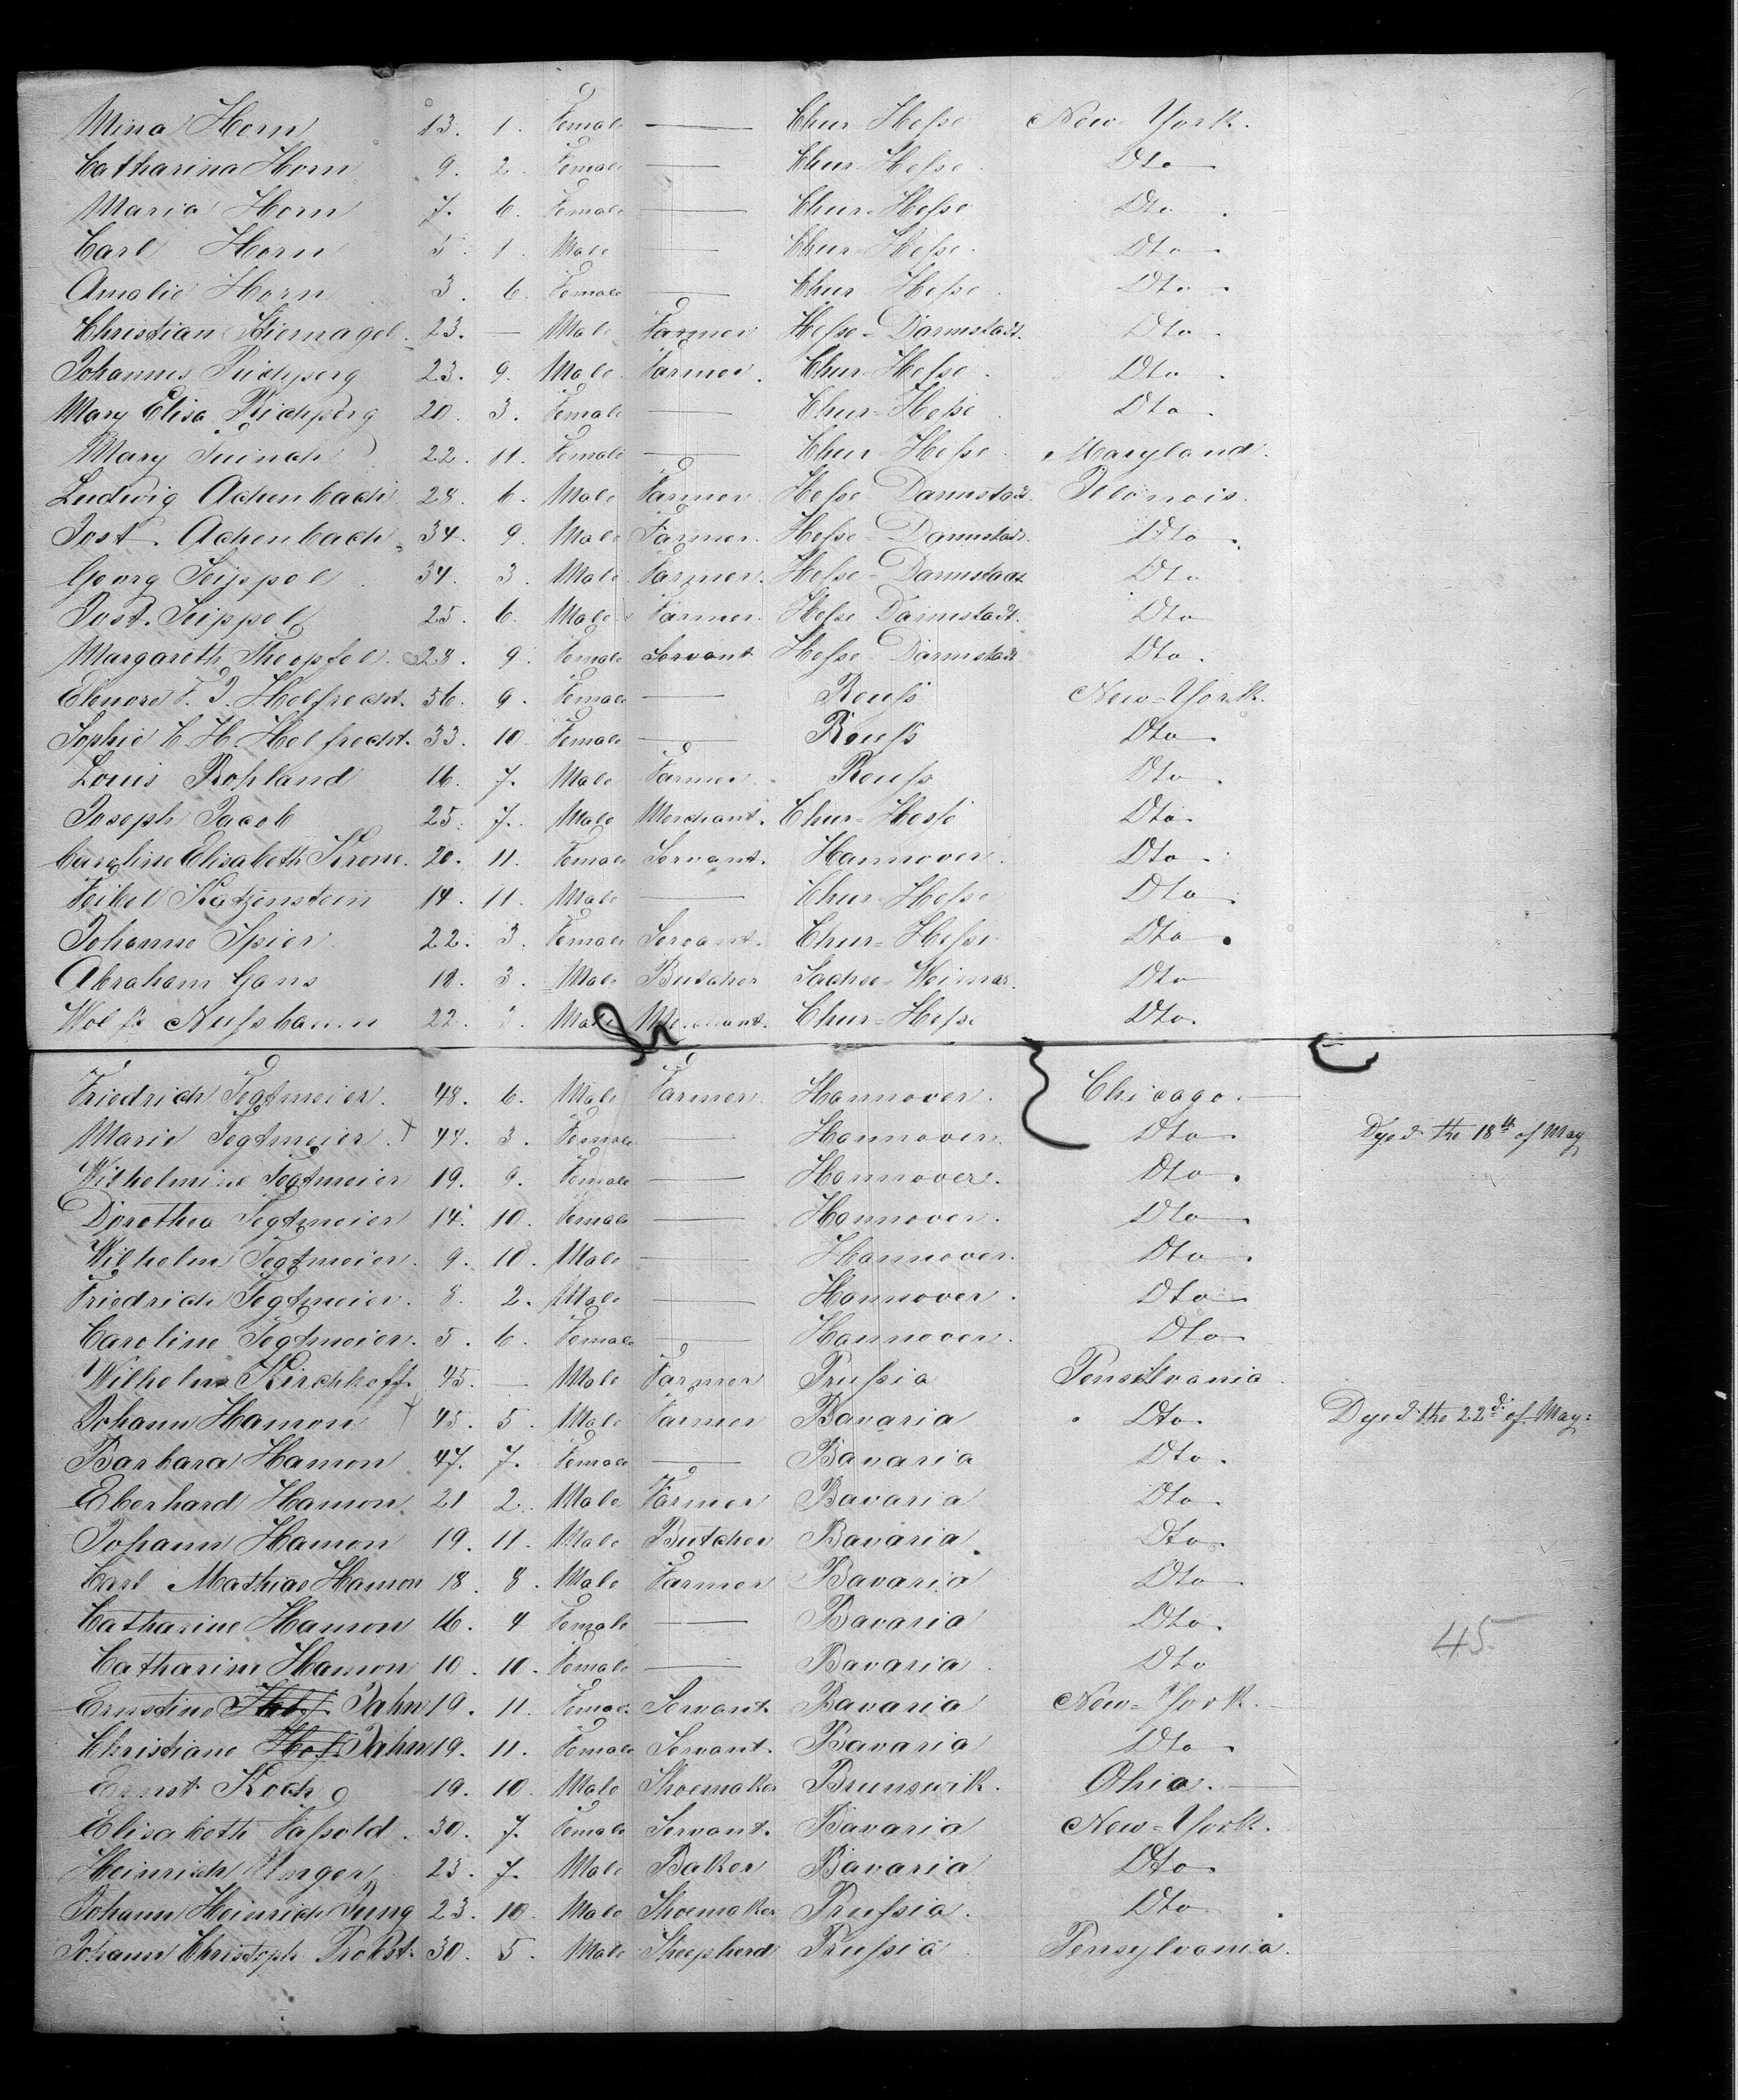 Mina Horn 13. 1. Female — Chur Hesse New-York.
Catharina Horn 9. 2. Female — Chur-Hesse. Dto
Maria Horn 7. 6. Female — Chur-Hesse Dto.
Carl Horn 5. 1. Male — Chur-Hesse. Dto
Amalie Horn 3. 6. Female — Chur Hesse. Dto.
Christian Stiernagel. 23. — Male Farmer Hesse-Darmstadt. Dto.
Johannes 23. 9. Male Farmer. Chur-Hesse. Dto.
Mary Elisa 20. 3. Female — Chur-Hesse. Dto.
Mary 22. 11. Female — Chur-Hesse. Maryland.
Ludwig Achenbach 28. 6. Male Farmer Hesse-Darmstadt Illonois.
Jost. Achenbach 34. 9. Male Farmer. Hesse-Darmstadt. Dto.
Georg Seippel 34. 3. Male Farmer. Hesse-Darmstadt Dto
Jost. Seippel 25. 6. Male Farmer. Hesse Darmstadt. Dto
Margareth Theopfel. 28. 9. Female Servant Hesse-Darmstadt Dto.
Elenore F. J. Helfrecht. 56. 9. Female — Reuss New-York.
Sophie C. H. Helfrecht. 33. 10. Female — Reuss Dto.
Louis Rossland 16. 7. Male Farmer. Reuss Dto.
Joseph Jacob 25. 7. Male Merchant. Chur-Hesse Dto.
Caroline Elisabeth Krone. 20. 11. Female Servant. Hannover. Dto.
Feikel Katzenstein 14. 11. Male — Chur-Hesse Dto.
Johanne Spier 22. 3. Female Servant. Chur-Hesse Dto.
Abraham Gans 18. 3. Male Butcher Sachse-Weimar. Dto
Nussbaum 22. Male Merchant. Chur-Hesse Dto.
Friedrich Tegtmeier. 48. 6. Male Farmer Hannover. Chicago.
Marie Tegtmeier. + 44. 3. Female — Hannover. Dto. Dyed the 18th of May
Wilhelmine Tegtmeier 19. 9. Female — Hannover. Dto.
Dorothea Tegtmeier 14. 10. Female — Hannover. Dto.
Wilhelm Tegtmeier. 9. 10. Male — Hannover. Dto.
Friedrich Tegtmeier. 8. 2. Male — Hannover. Dto
Caroline Tegtmeier. 5. 6. Female — Hannover. Dto
Wilhelm Kirchhoff. 45. — Male Farmer Prussia Pensilvania.
Johann Hamon + 45. 5. Male Farmer Bavaria Dto. Dyed the 22d. of May.
Barbara Hamon 47. 7. Female — Bavaria Dto.
Eberhard Hamon 21 2. Male Farmer Bavaria Dto.
Johann Hamon 19. 11. Male Butcher Bavaria. Dto.
Carl Mathias Hamon 18. 8. Male Farmer Bavaria Dto
Catharine Hamon 16. 4 Female — Bavaria Dto.
Catharine Hamon 10. 10. Female — Bavaria. Dto
45.
Ernstine Hof Jahn 19. 11. Female Servant. Bavaria New-York.
Christiane Hof Jahn 19. 11. Female Servant. Bavaria Dto.
Ernst Koch 19. 10. Male Shoemaker Brunswik. Ohio.
Elisabeth Fassold. 30. 7. Female Servant. Bavaria New-York.
Heinrich Unger 23. 7. Male Baker Bavaria Dto.
Johann Heinrich Jung 23. 10. Male Shoemaker Prussia. Dto.
Johann Christoph Probst. 30. 5. Male Sheepherd Prussia Pensylvania.